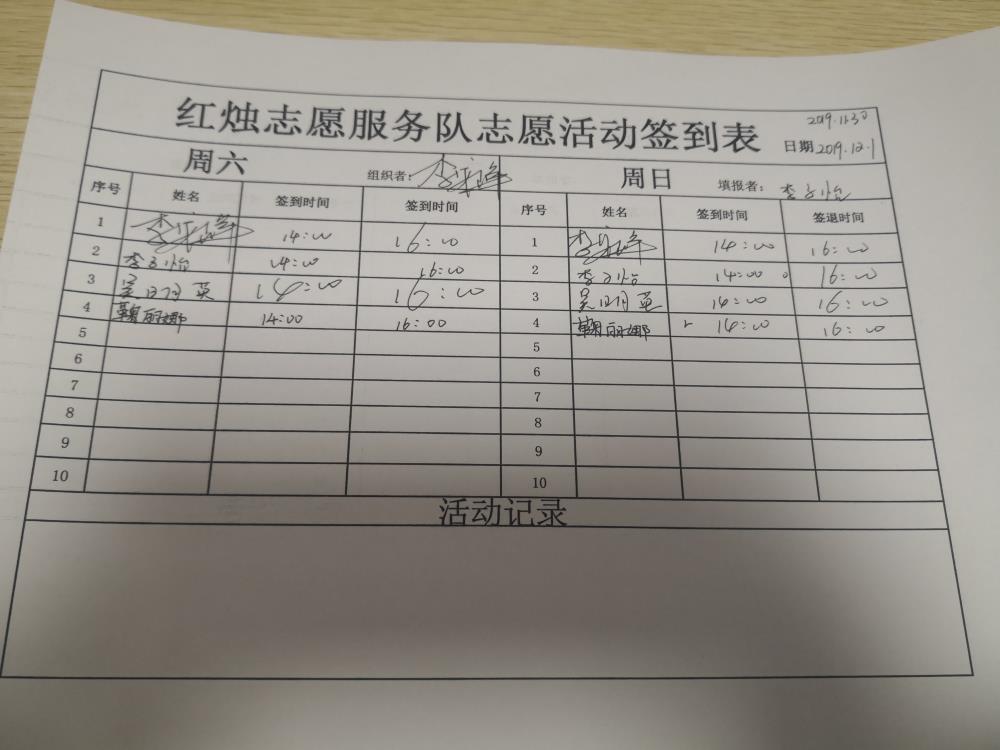 红烛志愿服务队志愿活动签到表
2019.11.30
日期2019.12.1
周六 组织者: 周日 填报者: 李子怡
序号 姓名 签到时间 签到时间 序号 姓名 签到时间 签退时间
1 14:00 16:00 1 14:00 16:00
2 李子怡 14:00 16:00 2 李子怡 14:00 16:00
3 吴明英 14:00 16:00 3 吴明英 14:00 16:00
4 鞠丽娜 14:00 16:00 4 鞠丽娜 14:00 16:00
5 5
6 6
7 7
8 8
9 9
10 10
活动记录